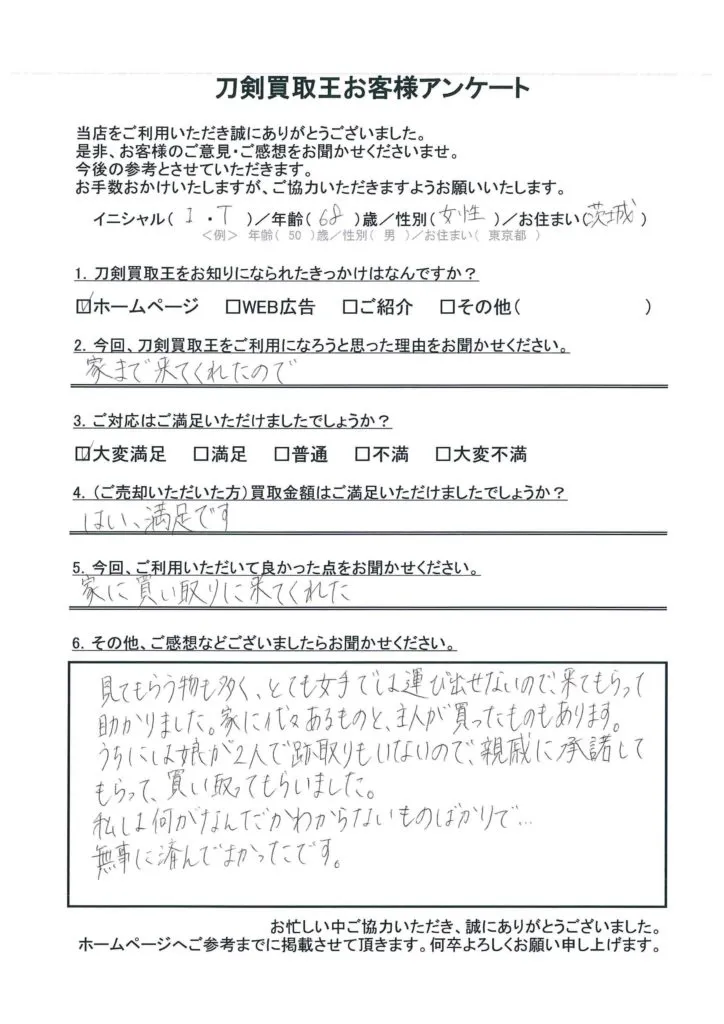 刀剣買取王お客様アンケート
当店をご利用いただき誠にありがとうございました。
是非、お客様のご意見・ご感想をお聞かせくださいませ。
今後の参考とさせていただきます。
お手数おかけいたしますが、ご協力いただきますようお願いいたします。
イニシャル( I ・ T )／年齢( 68 )歳／性別( 女性 )／お住まい( 茨城 )
＜例＞ 年齢( 50 )歳／性別( 男 )／お住まい( 東京都 )
1. 刀剣買取王をお知りになられたきっかけはなんですか？
☑ホームページ □WEB広告 □ご紹介 □その他( )
2. 今回、刀剣買取王をご利用になろうと思った理由をお聞かせください。
家まで来てくれたので
3. ご対応はご満足いただけましたでしょうか？
☑大変満足 □満足 □普通 □不満 □大変不満
4. (ご売却いただいた方)買取金額はご満足いただけましたでしょうか？
はい、満足です
5. 今回、ご利用いただいて良かった点をお聞かせください。
家に買い取りに来てくれた
6. その他、ご感想などございましたらお聞かせください。
見てもらう物も多く、とても女手では運び出せないので、来てもらって
助かりました。家に代々あるものと、主人が買ったものもあります。
うちには娘が2人で跡取りもいないので、親戚に承諾して
もらって、買い取ってもらいました。
私は何がなんだかわからないものばかりで…
無事に済んでよかったです。
お忙しい中ご協力いただき、誠にありがとうございました。
ホームページへご参考までに掲載させて頂きます。何卒よろしくお願い申し上げます。